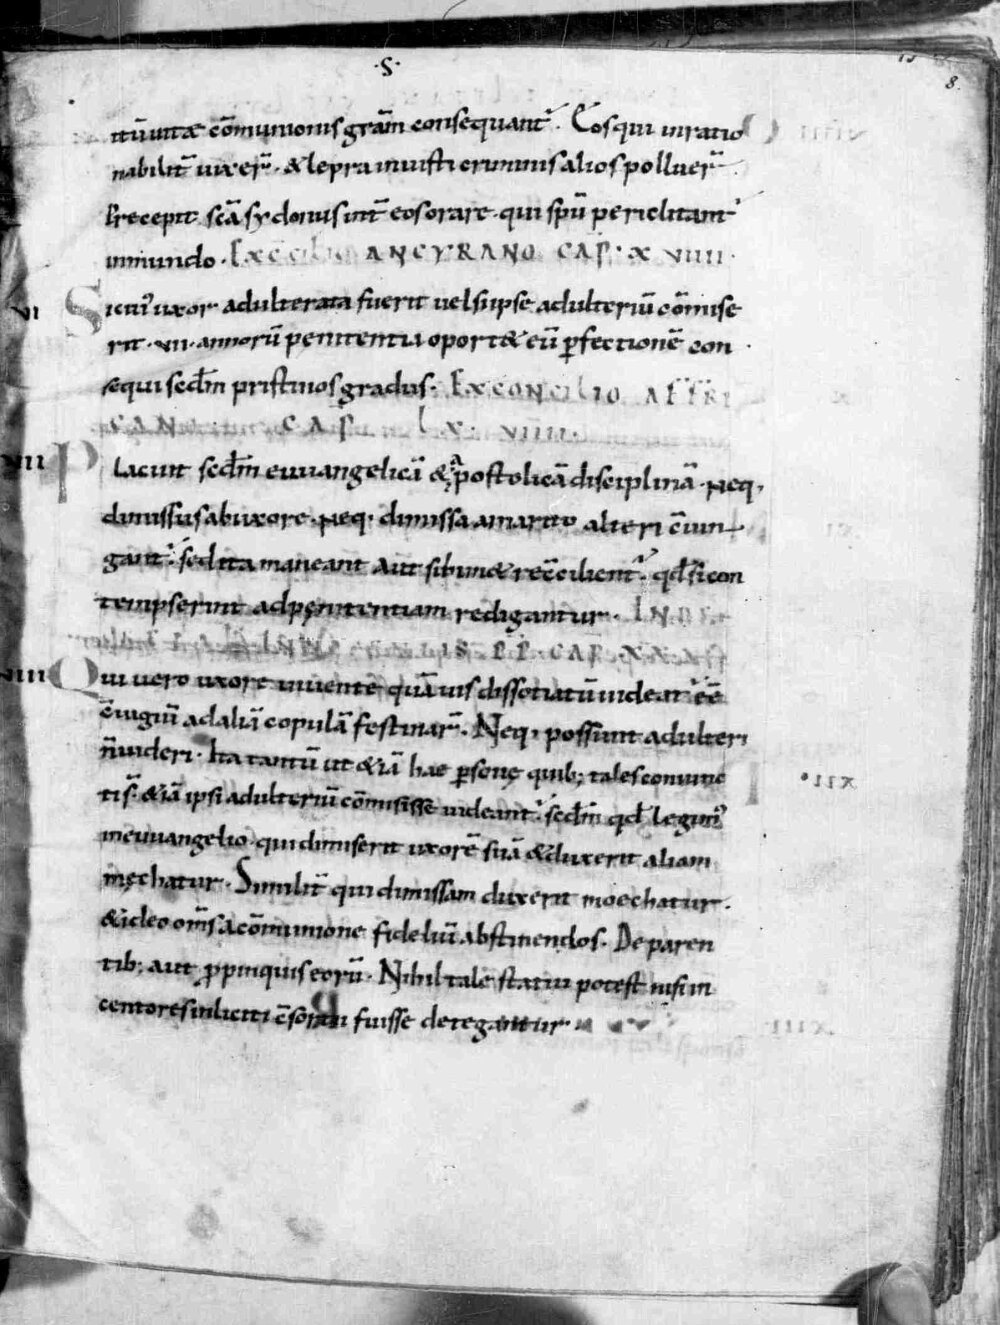 ·S·
8
itū uitae cōmunionis grām consequant̄. Eos qui inratio
nabilit̄ uixer̄. & lepra iniusti criminis alios polluer̄.
Precepit scā sydonus int̄ eos orare. qui spū periclitant̄
inmundo. EX CONCILIO ANCYRANO CAP. XVIIII.
VI Si cui' uxor adulterata fuerit uel si ipse adulteriū cōmise
rit. vii. annorū penitentia oport& eū p̄fectionē con
sequi secdm̄ pristinos gradus. EX CONCILIO AFFRI
CAN CAP LX. VIIII.
VII Placuit secdm̄ euuangelicā & apostolicā disciplinā. Neq,
dimissus ab uxore. Neq. dimissa a marito alteri c̄iun
gant̄. sed ita maneant Aut sibi inuicē rec̄cilient̄. qd̄ si con
tempserint ad penitentiam redigantur.
PP. CAP. XX
VIIII Qui uero uxore uiuente quāuis dissotiatū uideat̄ eē
c̄iugiū ad aliā copulā festinar̄. Neq, possunt adulteri
n̄ uideri. Ita tantū ut &iā hae p̄sonę quib; tales coniunc
ti s̄. &iā ipsi adulteriū cōmisisse uideant̄. secdm̄ qd̄ legim'
in euuangelio. qui dimiserit uxorē suā & duxerit aliam
męchatur. Similit̄ qui dimissam duxerit moechatur.
& ideo om̄s a cōmunione fideliū abstinendos. De paren
tib; aut p̄pinquis eorū. Nihil tale statui potest nisi in
centores inliciti c̄sortii fuisse detegantur
XII